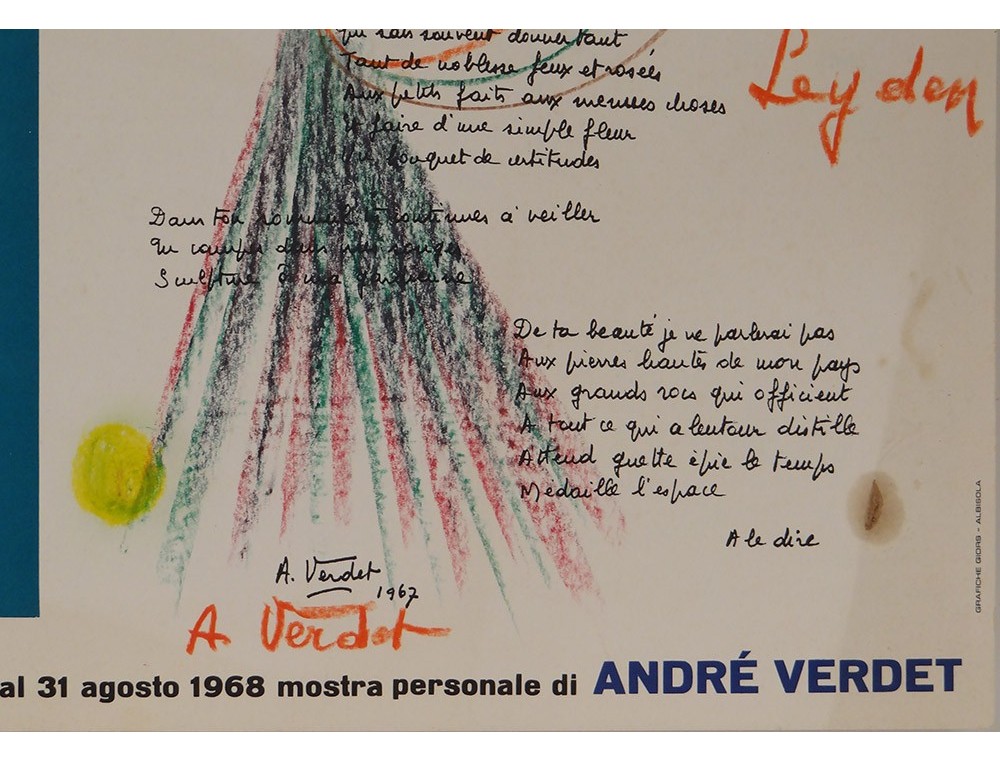 qui sais souvent donner tant
Tant de noblesse feux et rosées
Aux petits faits aux menues choses
Et faire d'une simple fleur
Un bouquet de certitudes
Leyden
Dans ton sommeil tu continues à veiller
Sculpture
De ta beauté je ne parlerai pas
Aux pierres hautes de mon pays
Aux grands rocs qui officient
A tout ce qui alentour distille
Attend guette épie le temps
Médaille l'espace
A le dire
A. Verdet
1967
A. Verdet
al 31 agosto 1968 mostra personale di ANDRÉ VERDET
GRAFICHE GIORS - ALBISOLA